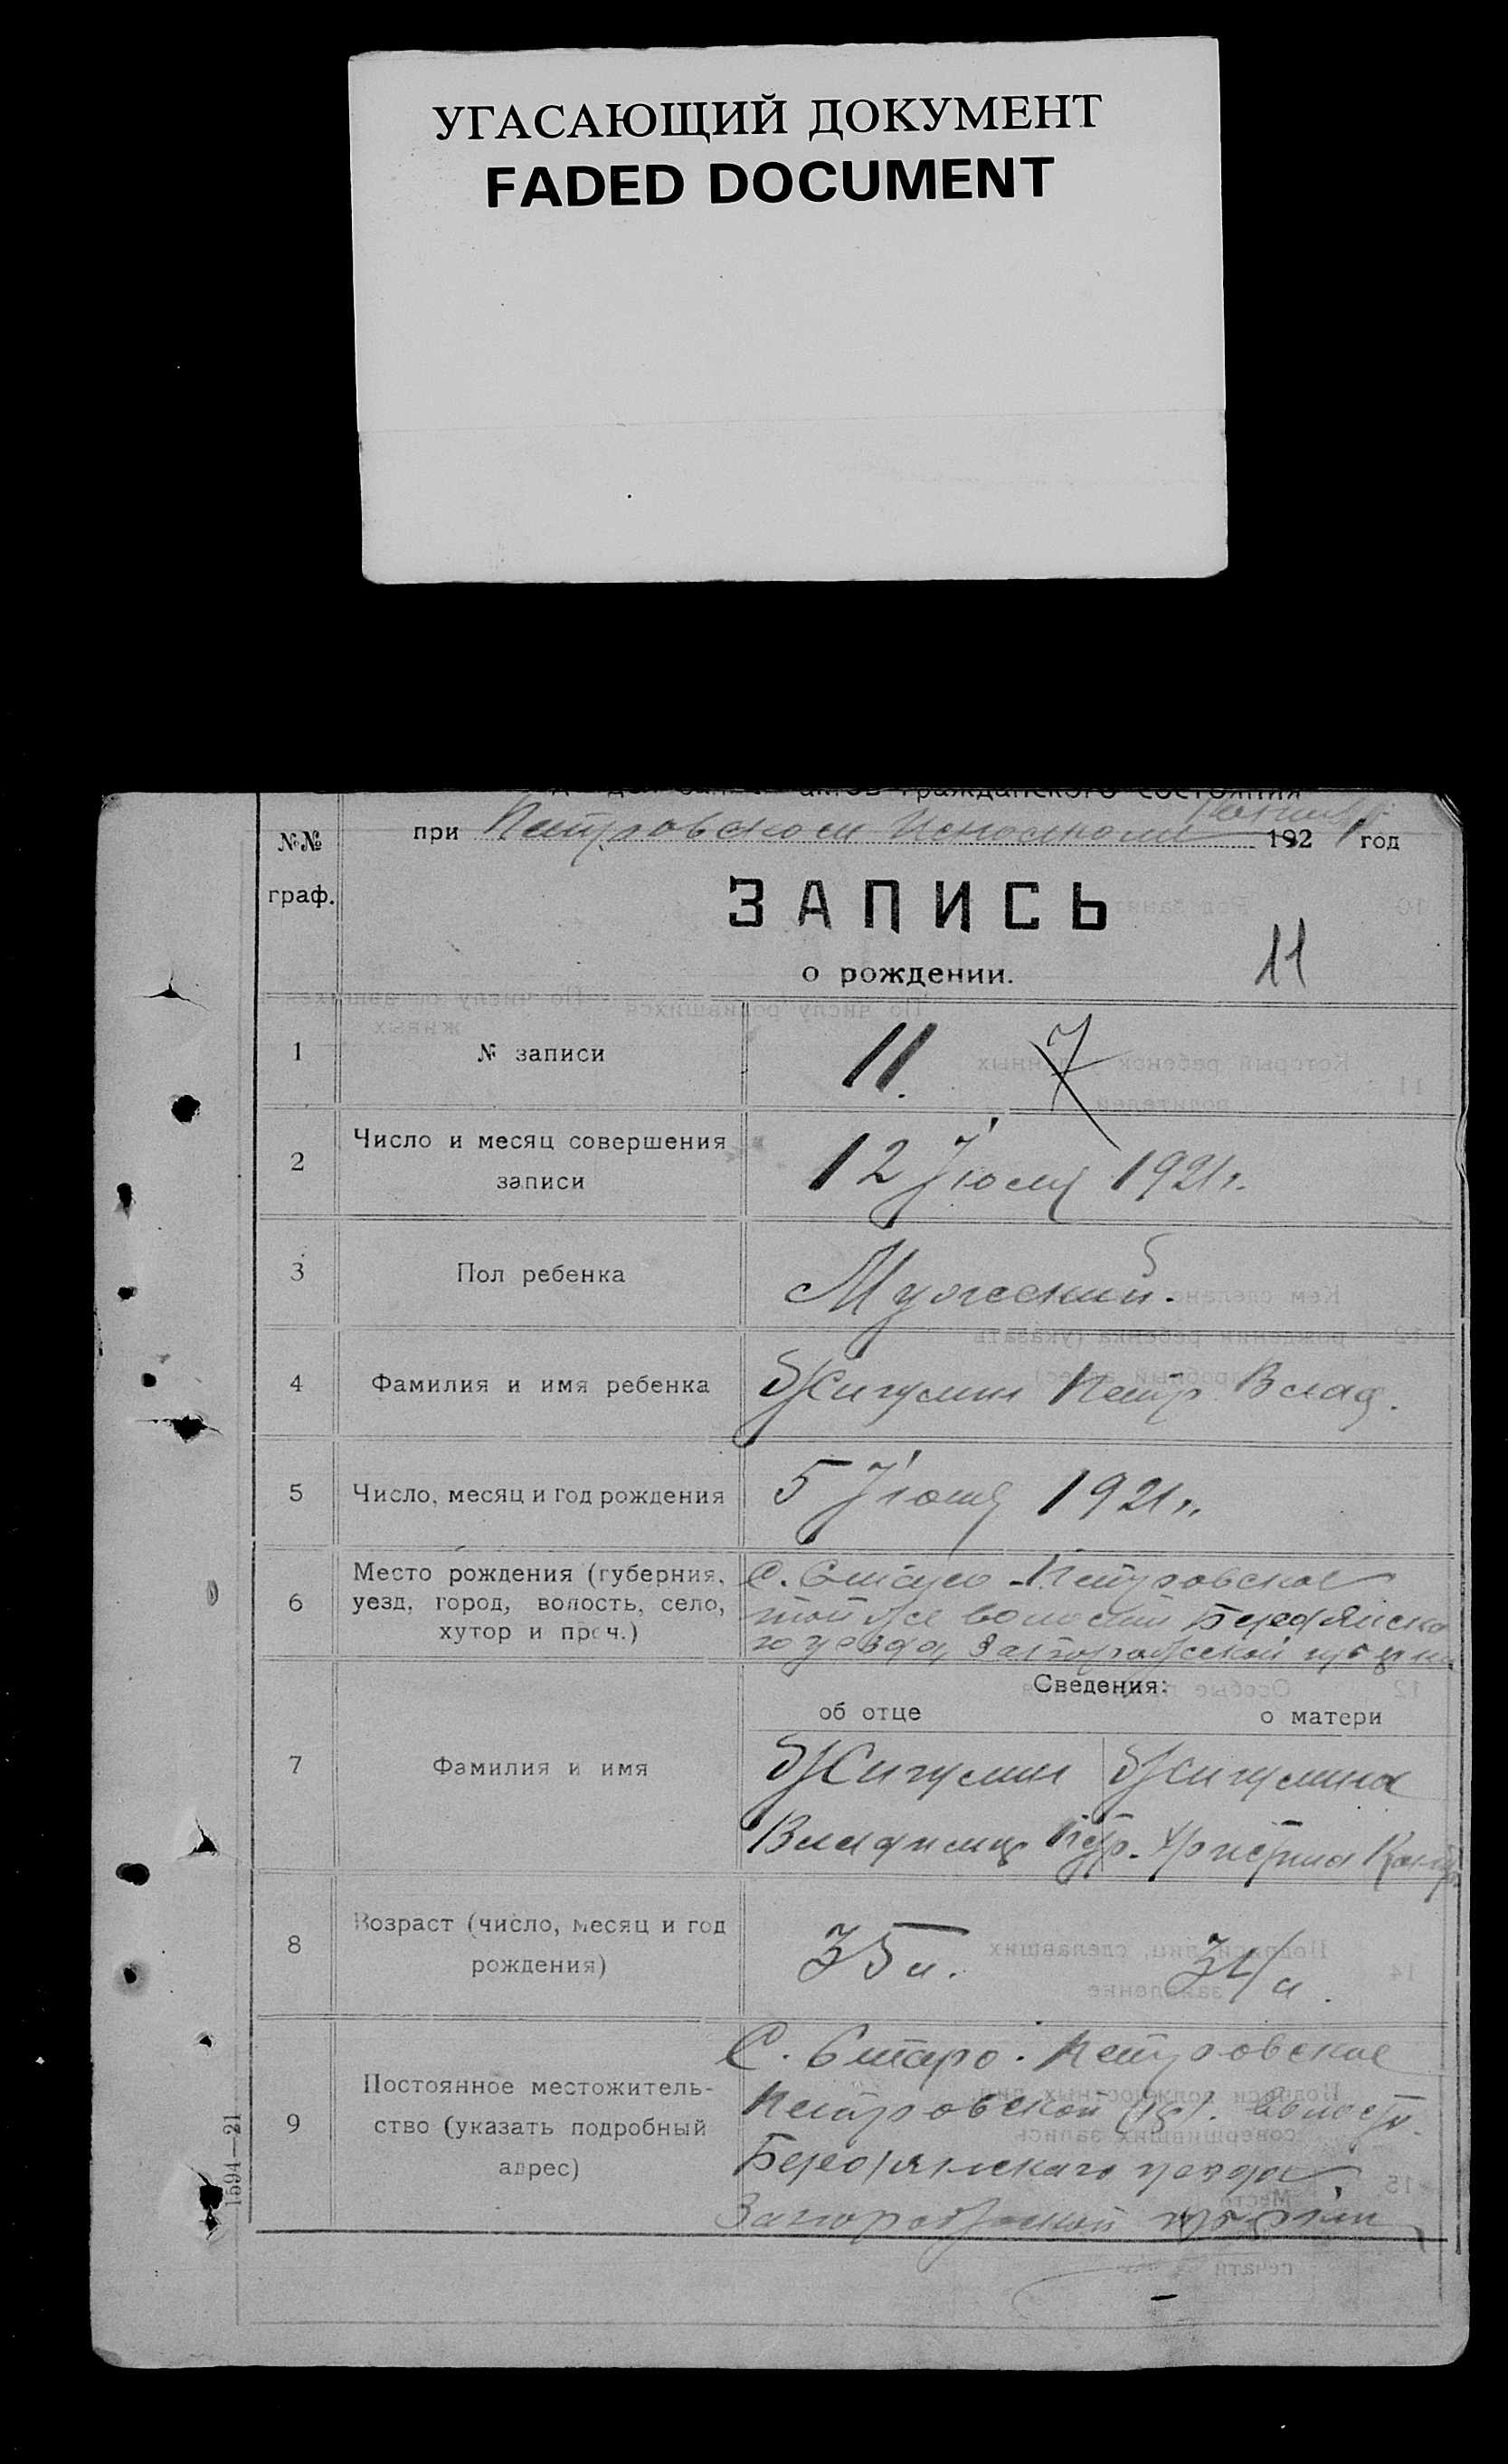 УГАСАЮЩИЙ ДОКУМЕНТ
FADED DOCUMENT
актов гражданского состояния
№№ граф.
при Петровском Исполкоме 1921 год
ЗАПИСЬ
о рождении.
11
1 № записи 11. 7
2 Число и месяц совершения записи 12 Июля 1921 г.
3 Пол ребенка Мужеский.
4 Фамилия и имя ребенка Жигулин Петр Влад.
5 Число, месяц и год рождения 5 Июля 1921 г.
6 Место рождения (губерния, уезд, город, волость, село, хутор и проч.)
С. Старо-Петровское
той же волости Бердянска
го уезда, Запорожской губернии
Сведения:
об отце о матери
7 Фамилия и имя
Жигулин Жигулина
Владимир Петр. Христина
8 Возраст (число, месяц и год рождения) 35 л. 34 л.
9 Постоянное местожительство (указать подробный адрес)
С. Старо-Петровское
Петровской волости
Бердянскаго уезда
Запорожской губернии
1594—21